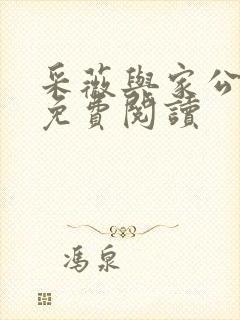 采薇與家公
免費閱讀
馮泉